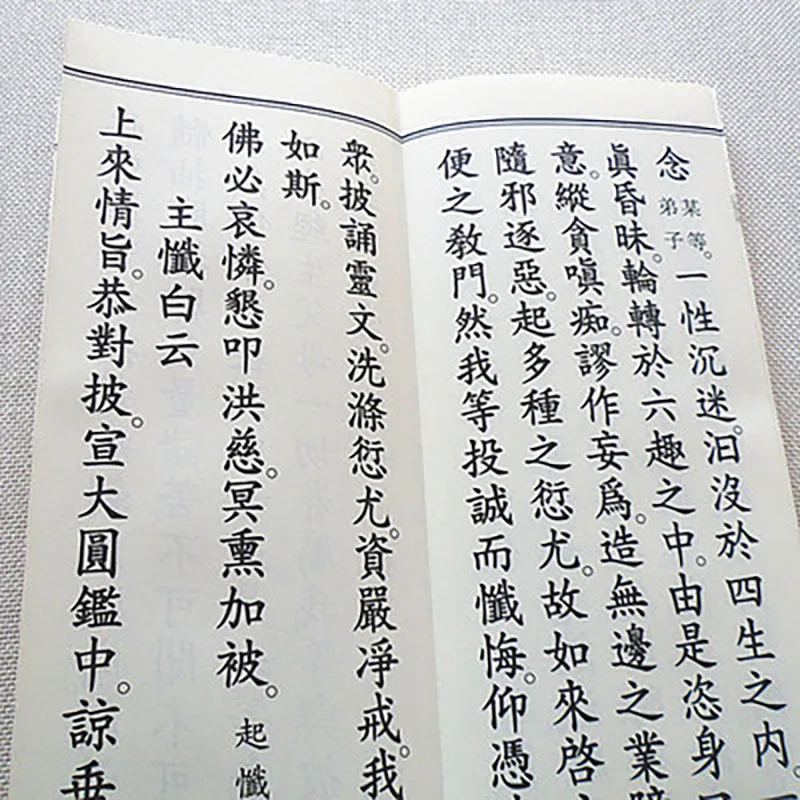 念某等弟子。一性沉迷。汩沒於四生之內。
眞昏昧。輪轉於六趣之中。由是恣身
意。縱貪嗔痴。謬作妄爲。造無邊之業障
隨邪逐惡。起多種之愆尤。故如來啓
便之教門。然我等投誠而懺悔。仰憑
衆。披誦靈文。洗滌愆尤。資嚴淨戒。我
如斯。
佛必哀憐。懇叩洪慈。冥熏加被。起懺
主懺白云
上來情旨。恭對披。宣大圓鑑中。諒垂